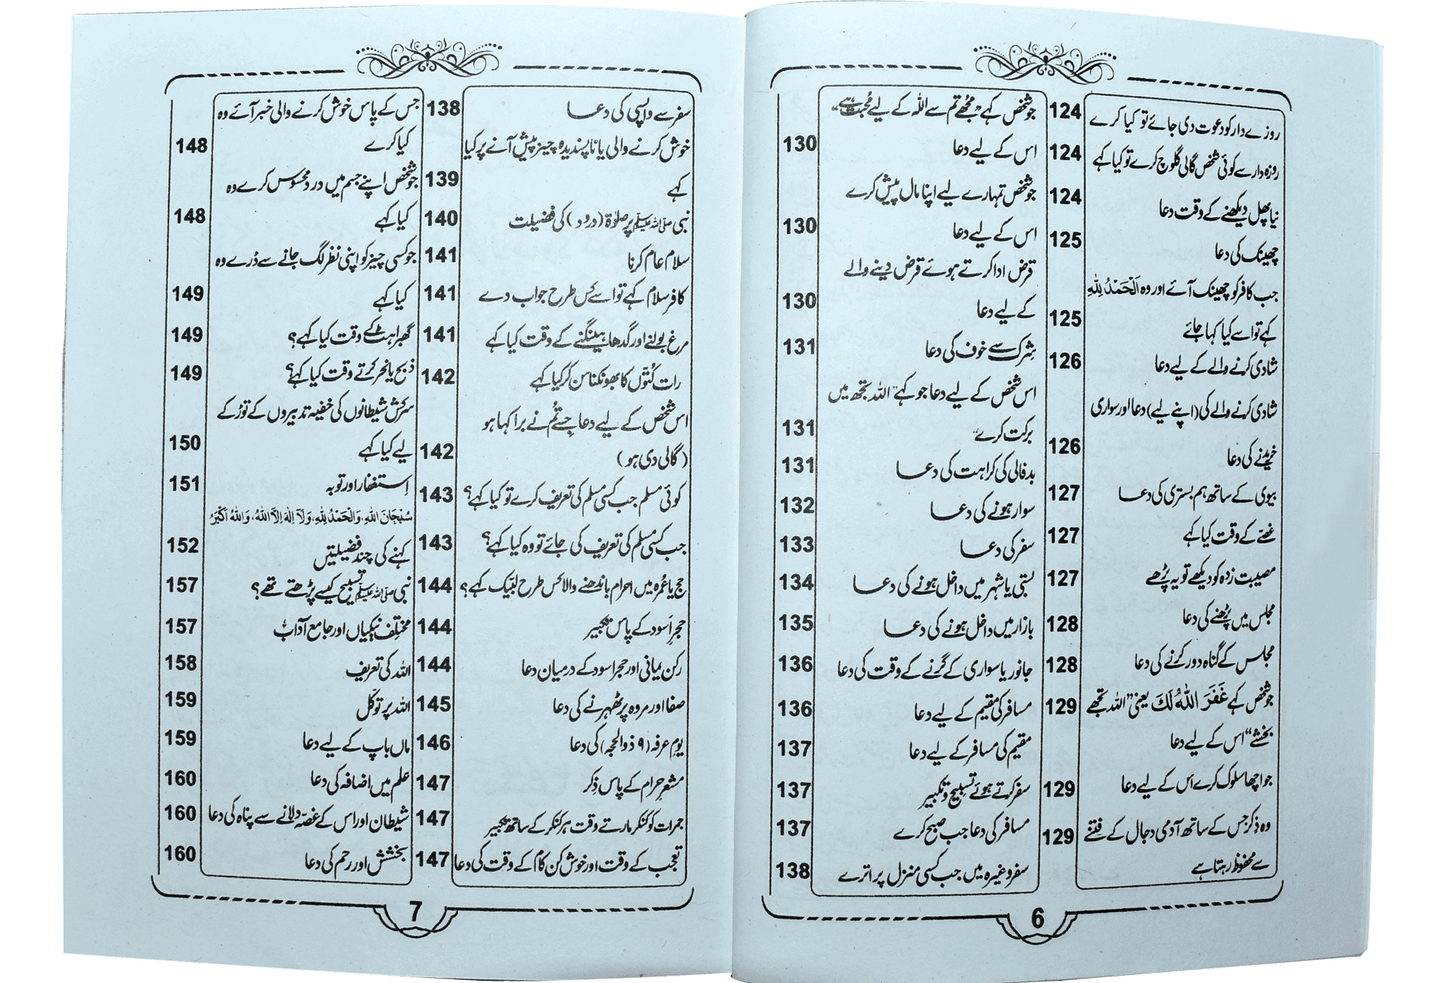 روزے دار کو دعوت دی جائے تو کیا کرے 124
روزہ دار سے کوئی شخص گالی گلوچ کرے تو کیا کہے 124
نیا پھل دیکھنے کے وقت دعا 124
چھینک کی دعا 125
جب کافر کو چھینک آئے اور وہ اَلْحَمْدُ لِلّٰہِ
کہے تو اسے کیا کہا جائے 125
شادی کرنے والے کے لیے دعا 126
شادی کرنے والے کی (اپنے لیے) دعا اور سواری
خریدنے کی دعا 126
بیوی کے ساتھ ہم بستری کی دعا 127
غصّے کے وقت کیا کہے 127
مصیبت زدہ کو دیکھے تو یہ پڑھے 127
مجلس میں پڑھنے کی دعا 128
مجلس کے گناہ دور کرنے کی دعا 128
جو شخص کہے غَفَرَ اللّٰهُ لَكَ یعنی ”اللہ تجھے 129
بخشے“ اس کے لیے دعا
جو اچھا سلوک کرے اس کے لیے دعا 129
وہ ذکر جس کے ساتھ آدمی دجال کے فتنے 129
سے محفوظ رہتا ہے
جو شخص کہے ”مجھے تم سے اللہ کے لیے محبت ہے“
اس کے لیے دعا 130
جو شخص تمہارے لیے اپنا مال پیش کرے
اس کے لیے دعا 130
قرض ادا کرتے ہوئے قرض دینے والے
کے لیے دعا 130
شرک سے خوف کی دعا 131
اس شخص کے لیے دعا جو کہے ”اللہ تجھ میں
برکت کرے“ 131
بدفالی کی کراہت کی دعا 131
سوار ہونے کی دعا 132
سفر کی دعا 133
بستی یا شہر میں داخل ہونے کی دعا 134
بازار میں داخل ہونے کی دعا 135
جانور یا سواری کے گرنے کے وقت کی دعا 136
مسافر کی مقیم کے لیے دعا 136
مقیم کی مسافر کے لیے دعا 137
سفر کرتے ہوئے تسبیح و تکبیر 137
مسافر کی دعا جب صبح کرے 137
سفر وغیرہ میں جب کسی منزل پر اترے 138
6
سفر سے واپسی کی دعا 138
خوش کرنے والی یا ناپسندیدہ چیز پیش آنے پر کیا
کہے 139
نبی ﷺ پر صلوٰۃ (درود) کی فضیلت 140
سلام عام کرنا 141
کافر سلام کہے تو اسے کس طرح جواب دے 141
مرغ بولنے اور گدھا ہینگنے کے وقت کیا کہے 141
رات کتّوں کا بھونکنا سن کر کیا کہے 142
اس شخص کے لیے دعا جسے تم نے برا کہا ہو
(گالی دی ہو) 142
کوئی مسلم جب کسی مسلم کی تعریف کرے تو کیا کہے؟ 143
جب کسی مسلم کی تعریف کی جائے تو وہ کیا کہے؟ 143
حج یا عمرہ میں احرام باندھنے والا کس طرح لبّیک کہے؟ 144
حجرِ اسود کے پاس تکبیر 144
رکن یمانی اور حجر اسود کے درمیان دعا 144
صفا اور مروہ پر ٹھہرنے کی دعا 145
یومِ عرفہ (۹ ذوالحجہ) کی دعا 146
مشعر حرام کے پاس ذِکر 147
جمرات کو کنکر مارتے وقت ہر کنکر کے ساتھ تکبیر 147
تعجب کے وقت اور خوش کن کام کے وقت کی دعا 147
جس کے پاس خوش کرنے والی خبر آئے وہ
کیا کرے 148
جو شخص اپنے جسم میں درد محسوس کرے وہ
کیا کہے 148
جو کسی چیز کو اپنی نظر لگ جانے سے ڈرے وہ
کیا کہے 149
گھبراہٹ کے وقت کیا کہے؟ 149
ذبح یا نحر کرتے وقت کیا کہے؟ 149
سرکش شیطانوں کی خفیہ تدبیروں کے توڑ کے
لیے کیا کہے 150
اِستغفار اور توبہ 151
سُبْحَانَ اللّٰهِ، وَالْحَمْدُ لِلّٰهِ، وَلَآ اِلٰهَ اِلَّا اللّٰهُ، وَاللّٰهُ اَكْبَرُ
کہنے کی چند فضیلتیں 152
نبی ﷺ تسبیح کیسے پڑھتے تھے؟ 157
مختلف نیکیاں اور جامع آداب 157
اللہ کی تعریف 158
اللہ پر توکّل 159
ماں باپ کے لیے دعا 159
علم میں اضافہ کی دعا 160
شیطان اور اس کے غصّہ دلانے سے پناہ کی دعا 160
بخشش اور رحم کی دعا 160
7